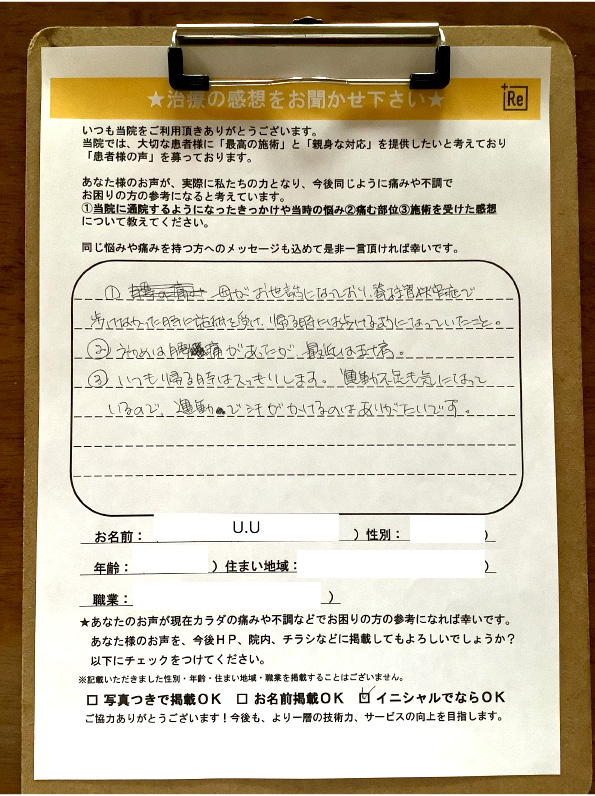 ★治療の感想をお聞かせ下さい★
Re
いつも当院をご利用頂きありがとうございます。
当院では、大切な患者様に「最高の施術」と「親身な対応」を提供したいと考えており
「患者様の声」を募っております。
あなた様のお声が、実際に私たちの力となり、今後同じように痛みや不調で
お困りの方の参考になると考えています。
①当院に通院するようになったきっかけや当時の悩み②痛む部位③施術を受けた感想
について教えてください。
同じ悩みや痛みを持つ方へのメッセージも込めて是非一言頂ければ幸いです。
① 母がお世話になっており、脊柱管狭窄症で
歩けなかった時に施術を受け、帰る時には歩けるようになっていたこと。
② 初めは腰痛があったが、最近は
③ いつも帰る時はスッキリします。運動不足も気になって
いるので、運動で汗がかけるのはありがたいです。
お名前： U.U ）性別： ）
年齢： ）住まい地域： ）
職業： ）
★あなたのお声が現在カラダの痛みや不調などでお困りの方の参考になれば幸いです。
あなた様のお声を、今後ＨＰ、院内、チラシなどに掲載してもよろしいでしょうか？
以下にチェックをつけてください。
※記載いただきました性別・年齢・住まい地域・職業を掲載することはございません。
□ 写真つきで掲載ＯＫ □ お名前掲載ＯＫ ☑ イニシャルでならＯＫ
ご協力ありがとうございます！今後も、より一層の技術力、サービスの向上を目指します。